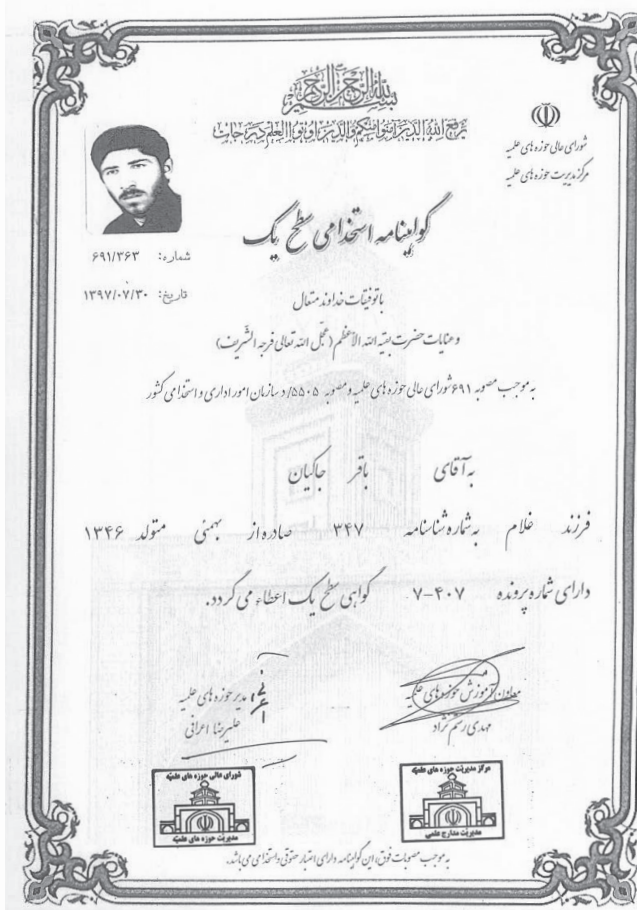 بسم الله الرحمن الرحیم
یرفع الله الذین آمنوا منکم والذین اوتوا العلم درجات
شورای عالی حوزه های علمیه
مرکز مدیریت حوزه های علمیه
گواهینامه استخدامی سطح یک
شماره: ۶۹۱/۳۶۳
تاریخ: ۱۳۹۷/۰۷/۳۰
با توفیقات خداوند متعال
و عنایات حضرت بقیه الله الأعظم (عجّل الله تعالی فرجه الشّریف)
به موجب مصوبه ۶۹۱ شورای عالی حوزه های علمیه و مصوبه ۵۵۰۵/د سازمان امور اداری و استخدامی کشور
به آقای باقر جاکیان
فرزند غلام به شماره شناسنامه ۳۴۷ صادره از بهمئی متولد ۱۳۴۶
دارای شماره پرونده ۷-۴۰۷ گواهی سطح یک اعطاء می گردد.
معاون آموزش حوزه های علمیه
مهدی رستم نژاد
مدیر حوزه های علمیه
علیرضا اعرافی
مرکز مدیریت حوزه های علمیه
مدیریت مدارج علمی
شورای عالی حوزه های علمیه
مدیریت حوزه های علمیه
به موجب مصوبات فوق، این گواهینامه دارای اعتبار حقوقی و استخدامی می باشد.